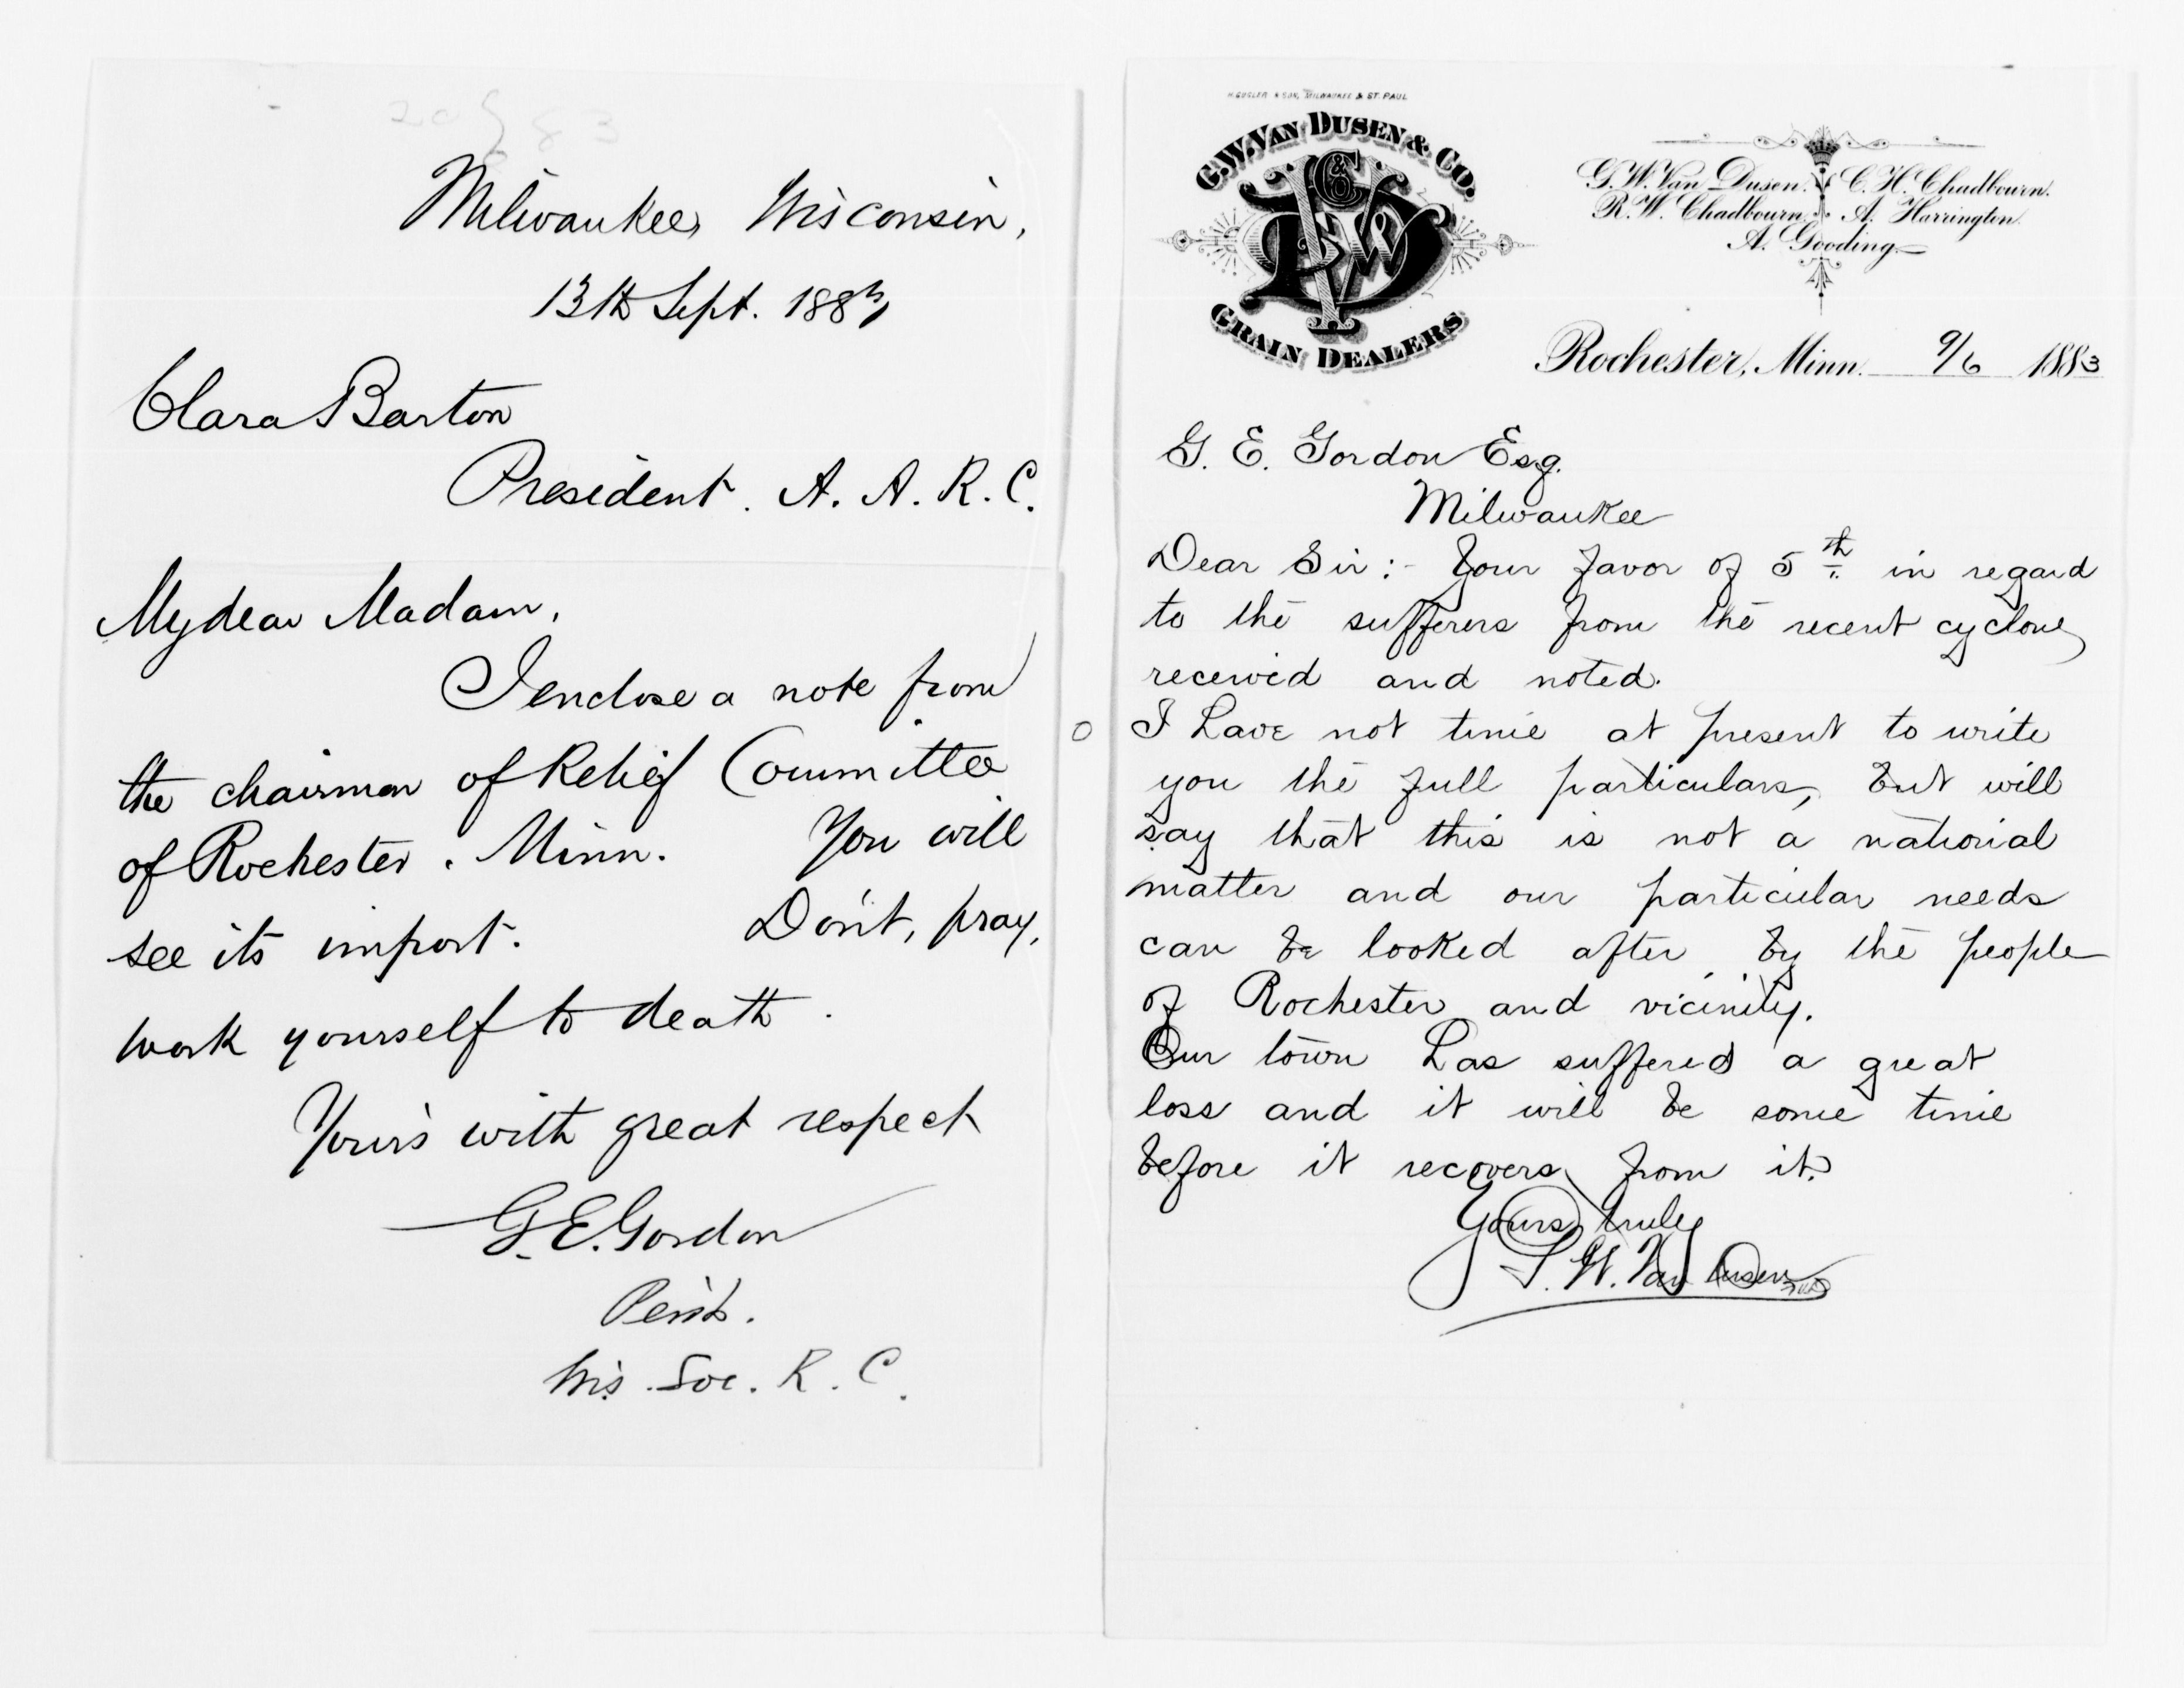 Milwaukee, Wisconsin,
13th Sept. 1883
Clara Barton
President. A. A. R. C.
My dear Madam,
I enclose a note from
the chairman of Relief Committee
of Rochester. Minn. You will
see its import. Don't, pray,
work yourself to death.
Your's with great respect
G. E. Gordon
Wis. Soc. R. C.
& SON, MILWAUKEE & ST. PAUL
G.W. VAN DUSEN & CO.
GRAIN DEALERS
G. W. Van Dusen. C. H. Chadbourn.
R. W. Chadbourn. A. Harrington.
A. Gooding.
Rochester, Minn. 9/6 1883
G. E. Gordon Esq.
Milwaukee
Dear Sir:- Your favor of 5th in regard
to the sufferers from the recent cyclone
received and noted.
I have not time at present to write
you the full particulars, but will
say that this is not a national
matter and our particular needs
can be looked after by the people
of Rochester and vicinity.
Our town has suffered a great
loss and it will be some time
before it recovers from it.
Yours truly
G. W. Van Dusen